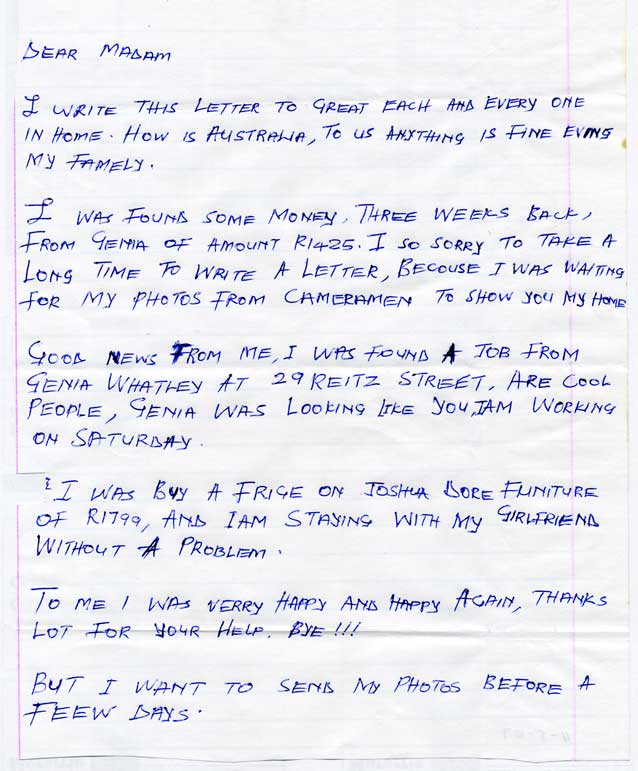 DEAR MADAM
I WRITE THIS LETTER TO GREAT EACH AND EVERY ONE
IN HOME. HOW IS AUSTRALIA, TO US ANYTHING IS FINE EVING
MY FAMELY.
I WAS FOUND SOME MONEY, THREE WEEKS BACK,
FROM GENIA OF AMOUNT R1425. I SO SORRY TO TAKE A
LONG TIME TO WRITE A LETTER, BECOUSE I WAS WAITING
FOR MY PHOTOS FROM CAMERAMEN TO SHOW YOU MY HOME
GOOD NEWS FROM ME, I WAS FOUND A JOB FROM
GENIA WHATLEY AT 29 REITZ STREET, ARE COOL
PEOPLE, GENIA WAS LOOKING LIKE YOU, IAM WORKING
ON SATURDAY.
I WAS BUY A FRIGE ON JOSHUA DORE FUNITURE
OF R1799, AND IAM STAYING WITH MY GIRLFRIEND
WITHOUT A PROBLEM.
TO ME I WAS VERRY HAPPY AND HAPPY AGAIN, THANKS
LOT FOR YOUR HELP. BYE!!!
BUT I WANT TO SEND MY PHOTOS BEFORE A
FEEW DAYS.